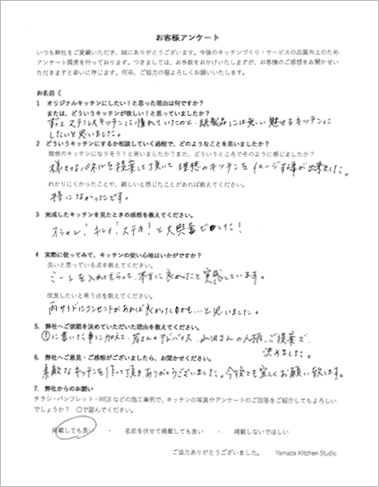 お客様アンケート
いつも弊社をご愛顧いただき、誠にありがとうございます。今後のキッチンづくり・サービスの品質向上のため
アンケート調査を行っております。つきましては、お手数をおかけいたしますが、お客様のご感想をお聞かせい
ただきますと幸いに存じます。何卒、ご協力の程よろしくお願いいたします。
お名前（
1 オリジナルキッチンにしたい！と思った理由は何ですか？
または、どういうキッチンが欲しい！と思っていますか？
ずっとステンレスキッチンに憧れていたのと、既製品には無い魅せるキッチンに
したいと思いました。
2 どういうキッチンにするか相談していく過程で、どのようなことを思いましたか？
理想のキッチンになりそう！と思いましたか？また、どういうところでそのように感じましたか？
様々なパネルを提案して頂いて 理想のキッチンをイメージする事が出来ました。
わかりにくかったことや、難しいと感じたことがあれば教えてください。
特になかったです。
3 完成したキッチンを見たときの感想を教えてください。
オシャレ！キレイ！ステキ！と大興奮でした！
4 実際に使ってみて、キッチンの使い心地はいかがですか？
良いと思っている点を教えてください。
ミーレを入れてもらって、本当に良かったと実感しています。
改良したいと思う点を教えてください。
両サイドにコンセントがあれば良かったかも…と思いました。
5. 弊社へご依頼を決めていただいた理由を教えてください。
①に書いた事に加えて、 さんのアドバイス さんの人柄、ご提案で
決めました。
6. 弊社へご意見・ご感想がございましたら、お聞かせください。
素敵なキッチンを作って頂きありがとうございました。今後とも宜しくお願い致します。
7. 弊社からのお願い
チラシ・パンフレット・WEBなどの施工事例で、キッチンの写真やアンケートのご回答をご紹介してもよろしい
でしょうか？ ○で囲んでください。
掲載しても良い ・ 名前を伏せて掲載しても良い ・ 掲載しないでほしい
ご協力ありがとうございました。 Yamada Kitchen Studio